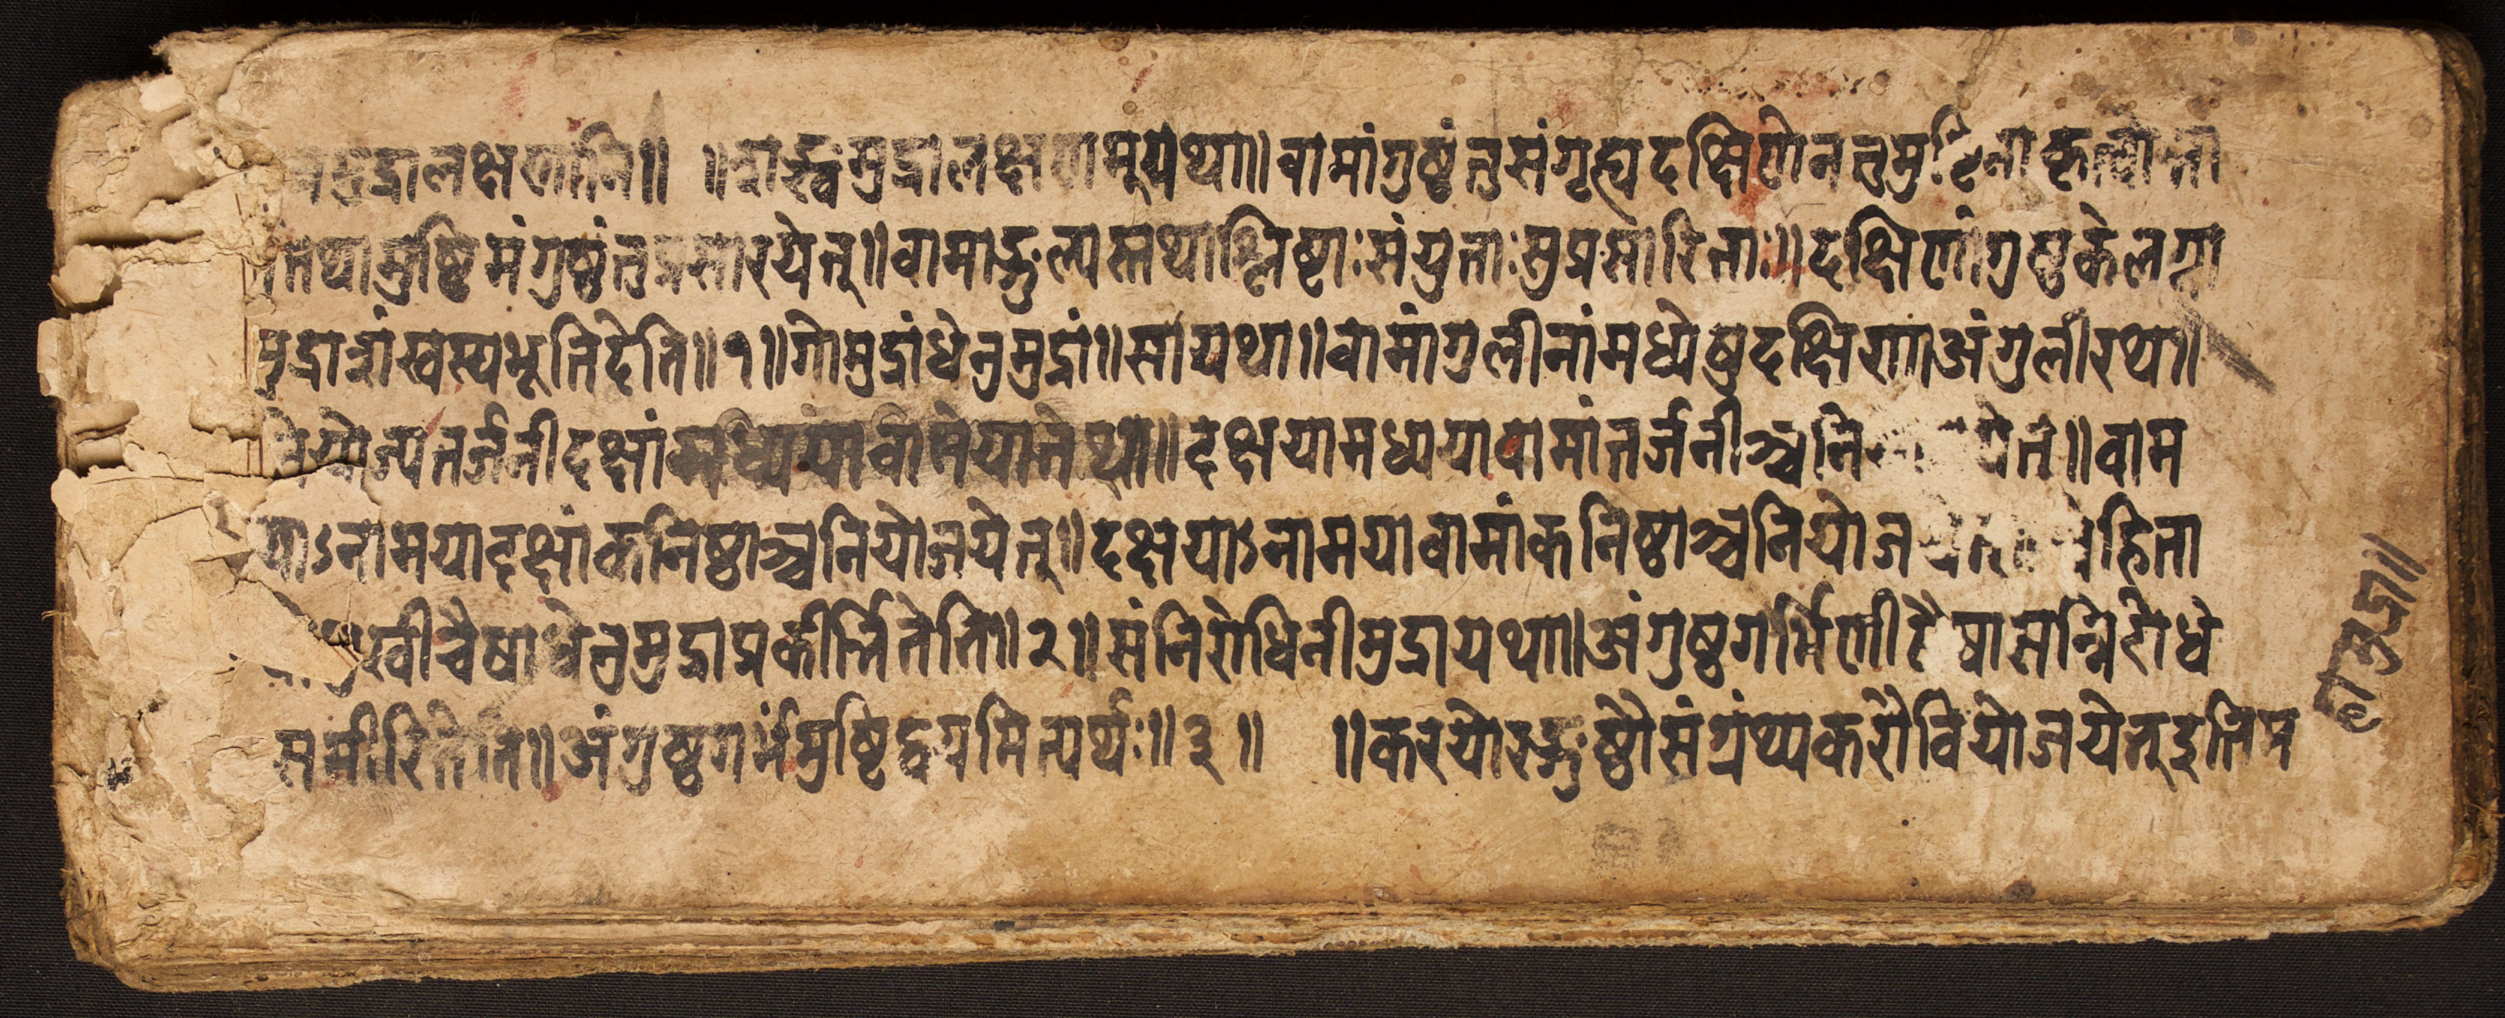 मुद्रालक्षणानि॥ ॥ मुद्रालक्षणम् यथा॥ वामांगुष्ठंतु संगृह्य दक्षिणेन तु मुष्टिना
तथा मुष्टिमंगुष्ठंतु प्रसारयेत्॥ वामाङ्गुल्यस्तथाश्लिष्टाः संयुताः सुप्रसारिताः॥ दक्षिणांगुष्ठके लग्ना
भूतिदेति॥ १॥ गोमुद्रां धेनुमुद्रां॥ सा यथा॥ वामांगुलीनां मध्येषु दक्षिणा अंगुलीरथा॥
तर्जनी दक्षां दक्षया मध्यया वामां तर्जनीञ्च नि वाम
याऽनामया दक्षां कनिष्ठाञ्च नियोजयेत्॥ दक्षयाऽनामया वामां कनिष्ठाञ्च हिता
चैषा धेनुमुद्रा प्रकीर्त्तितेति॥ २॥ संनिरोधिनीमुद्रा यथा॥ अंगुष्ठगर्भिणी सन्निरोधे
समीरितेति॥ अंगुष्ठगर्भमुष्टिद्वयमित्यर्थः॥ ३॥ ॥ करयोरङ्गुष्ठौ संग्रंथ्य करौ वियोजयेत् इति प्र
मुद्रा॥